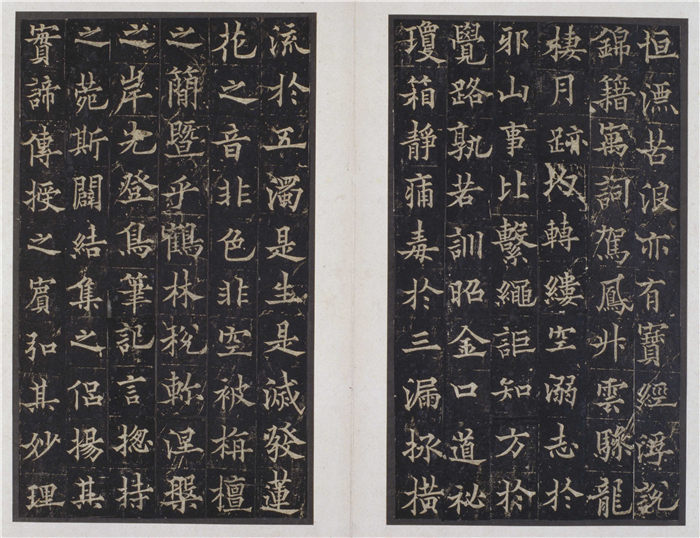 恒漂苦浪亦有寶經浮說
錦籍寓詞駕鳳升雲驂龍
棲月跡均轉縷空溺志於
邪山事比繫繩詎知方於
覺路孰若訓昭金口道祕
瓊箱靜痛毒於三漏拯橫
流於五濁是生是滅發蓮
花之音非色非空被栴檀
之簡暨乎鶴林稅軫涅槃
之岸先登鳥筆記言揔持
之菀斯闢結集之侶揚其
實諦傳授之賓弘其妙理